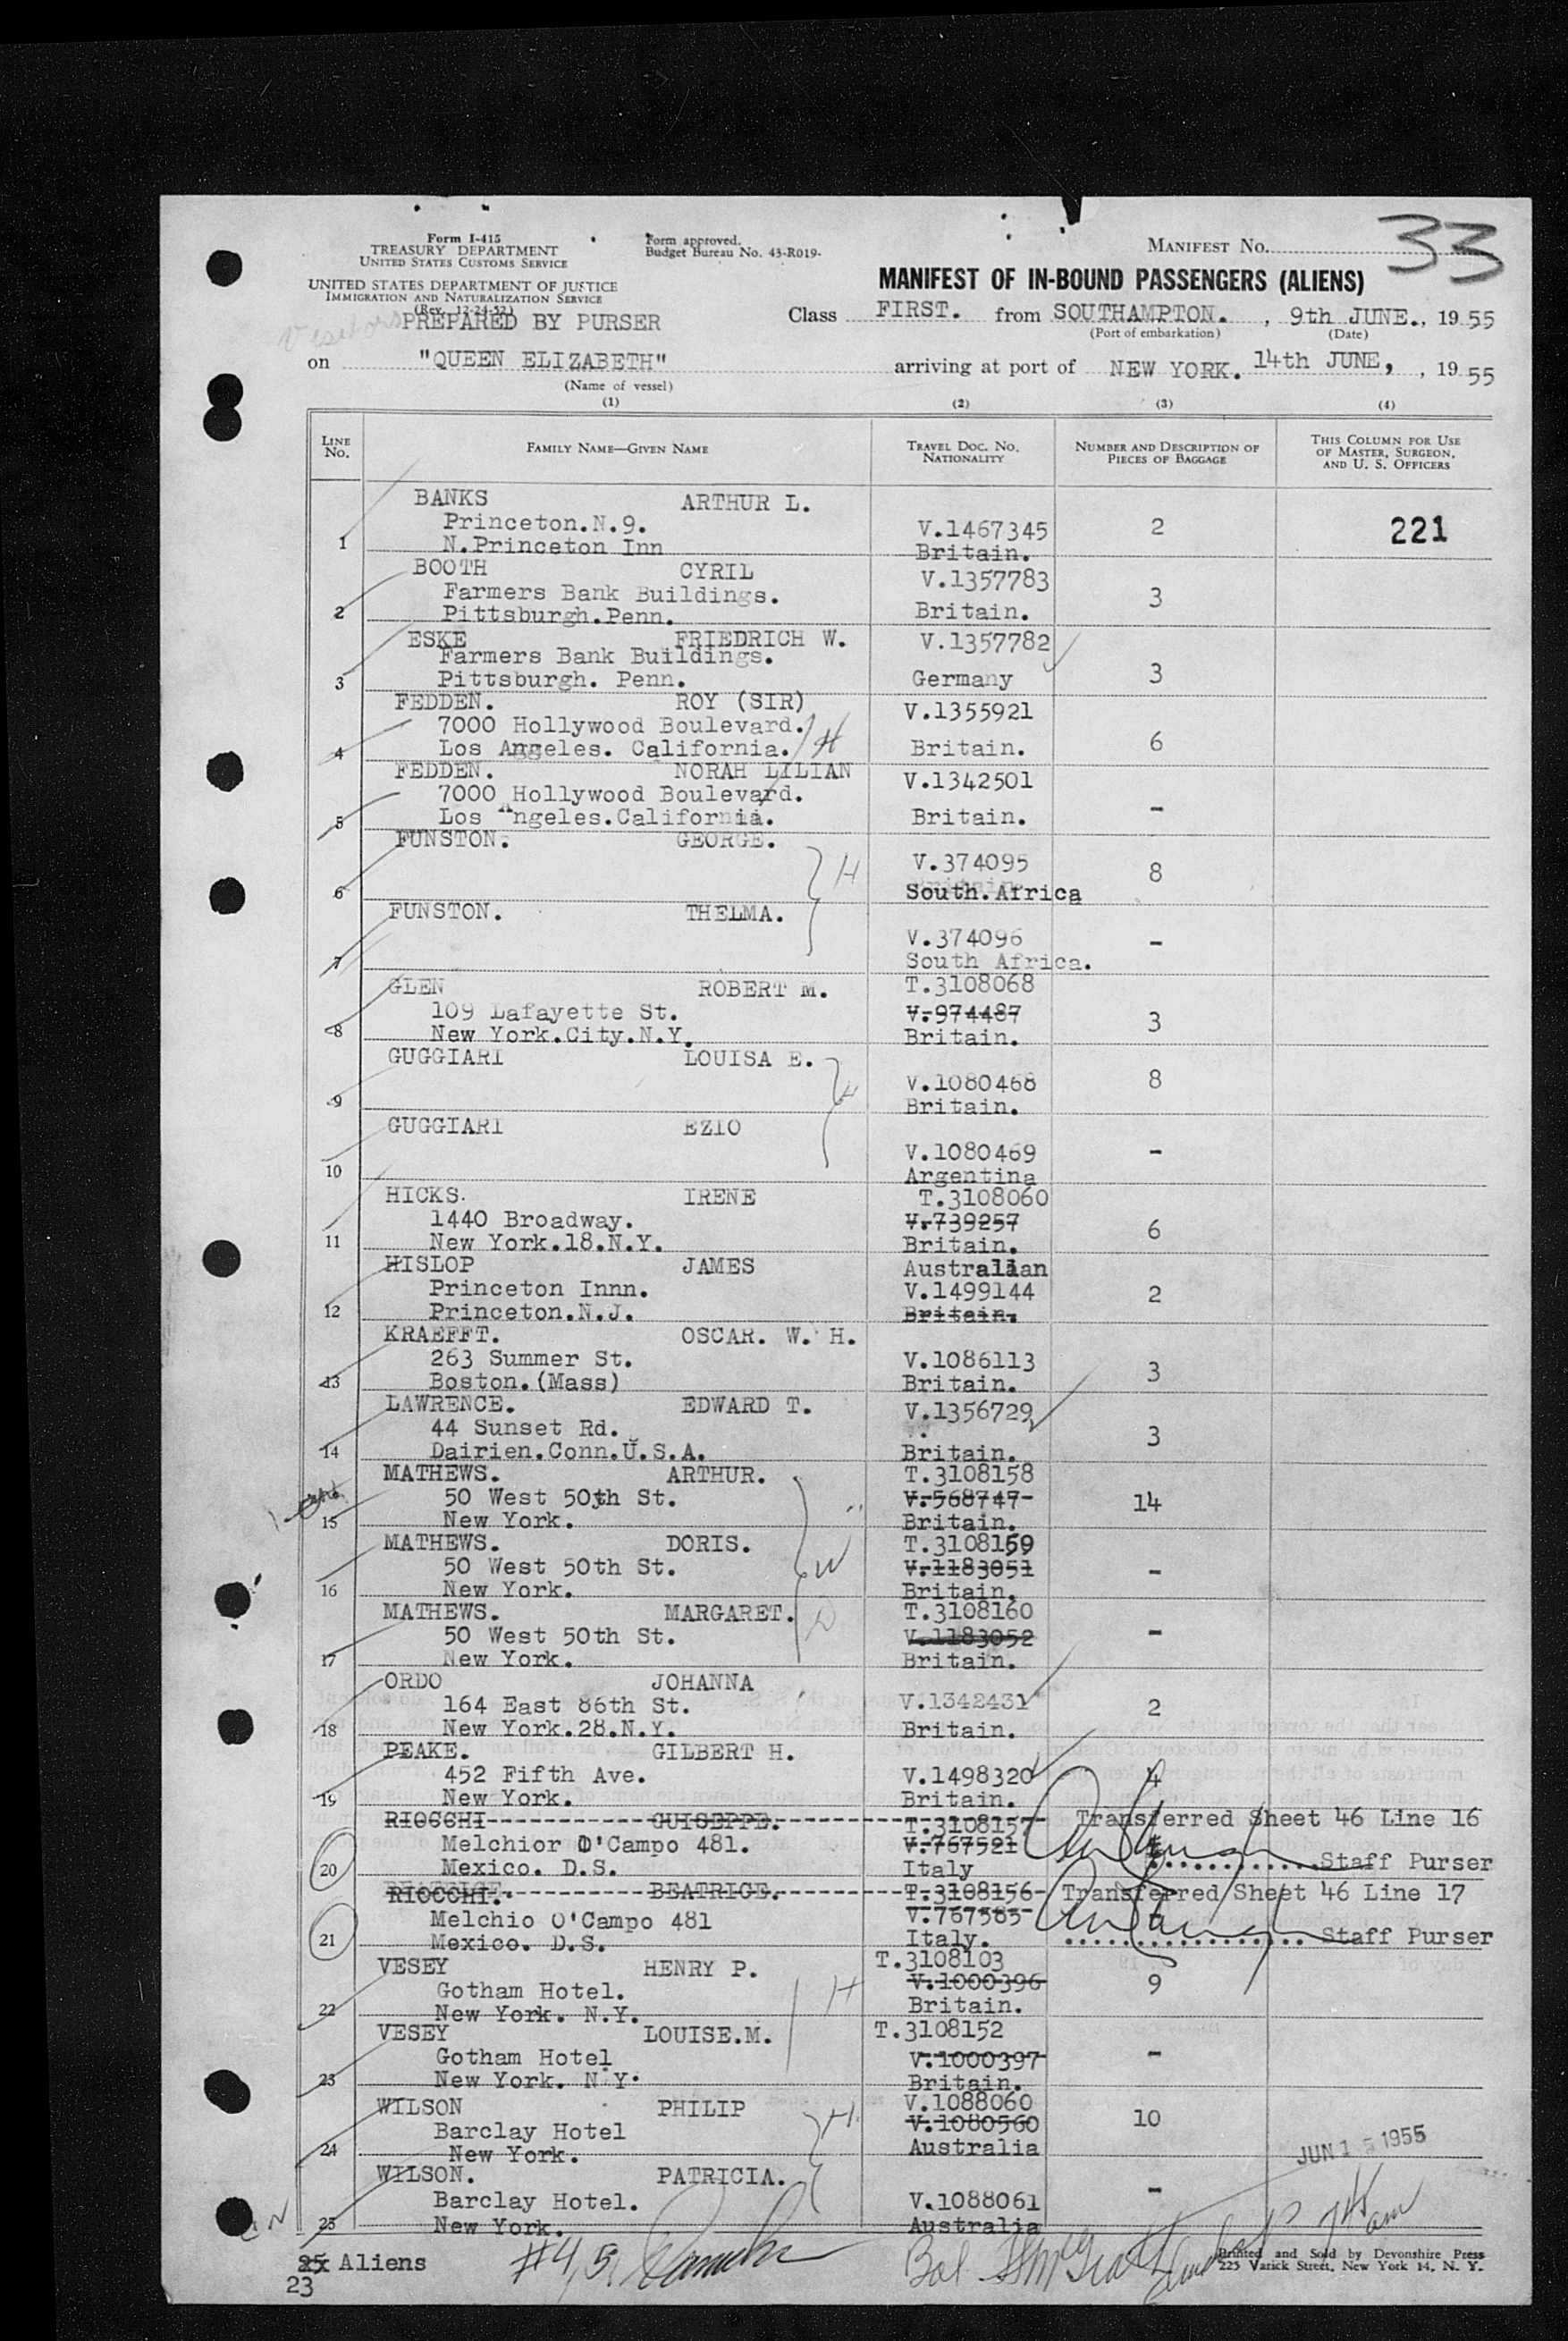 33
Form I-415
TREASURY DEPARTMENT
UNITED STATES CUSTOMS SERVICE
Form approved.
Budget Bureau No. 43-R019-
MANIFEST No.
UNITED STATES DEPARTMENT OF JUSTICE
IMMIGRATION AND NATURALIZATION SERVICE
(Rev. 12-24-52)
MANIFEST OF IN-BOUND PASSENGERS (ALIENS)
Visitors PREPARED BY PURSER
Class FIRST. from SOUTHAMPTON. , 9th JUNE., 1955
(Port of embarkation) (Date)
on "QUEEN ELIZABETH" arriving at port of NEW YORK. 14th JUNE, , 1955
(Name of vessel)
(1) (2) (3) (4)
LINE No. FAMILY NAME—GIVEN NAME TRAVEL DOC. NO. NATIONALITY NUMBER AND DESCRIPTION OF PIECES OF BAGGAGE THIS COLUMN FOR USE OF MASTER, SURGEON, AND U. S. OFFICERS
BANKS ARTHUR L.
Princeton.N.9. V.1467345 2 221
1 N.Princeton Inn Britain.
BOOTH CYRIL V.1357783
Farmers Bank Buildings. 3
2 Pittsburgh.Penn. Britain.
ESKE FRIEDRICH W. V.1357782
Farmers Bank Buildings. 3
3 Pittsburgh. Penn. Germany
FEDDEN. ROY (SIR) V.1355921
7000 Hollywood Boulevard. H
4 Los Angeles. California. Britain. 6
FEDDEN. NORAH LILIAN V.1342501
7000 Hollywood Boulevard. -
5 Los Angeles.California. Britain.
FUNSTON. GEORGE.
H V.374095 8
6 South.Africa
FUNSTON. THELMA.
V.374096 -
7 South Africa.
GLEN ROBERT M. T.3108068
109 Lafayette St. V.974487 3
8 New York.City.N.Y. Britain.
GUGGIARI LOUISA E.
V.1080468 8
9 Britain.
GUGGIARI EZIO
V.1080469 -
10 Argentina
HICKS. IRENE T.3108060
1440 Broadway. V.739257 6
11 New York.18.N.Y. Britain.
HISLOP JAMES Australian
Princeton Innn. V.1499144 2
12 Princeton.N.J. Britain.
KRAEFFT. OSCAR. W. H.
263 Summer St. V.1086113 3
13 Boston.(Mass) Britain.
LAWRENCE. EDWARD T. V.1356729
44 Sunset Rd. 3
14 Dairien.Conn.U.S.A. Britain.
MATHEWS. ARTHUR. T.3108158
50 West 50th St. V.568747 14
15 New York. Britain.
MATHEWS. DORIS. T.3108159
50 West 50th St. W V.1183051 -
16 New York. Britain.
MATHEWS. MARGARET. T.3108160
50 West 50th St. D V.1183052 -
17 New York. Britain.
ORDO JOHANNA
164 East 86th St. V.1342431 2
18 New York.28.N.Y. Britain.
PEAKE. GILBERT H.
452 Fifth Ave. V.1498320 4
19 New York. Britain.
RIOCCHI GUISEPPE. T.3108157 Transferred Sheet 46 Line 16
Melchior O'Campo 481. V.767521
20 Mexico. D.S. Italy Staff Purser
RIOCCHI. BEATRICE. T.3108156 Transferred Sheet 46 Line 17
Melchio O'Campo 481 V.767565
21 Mexico. D.S. Italy. Staff Purser
VESEY HENRY P. T.3108103
Gotham Hotel. H V.1000396 9
22 New York. N.Y. Britain.
VESEY LOUISE.M. T.3108152
Gotham Hotel V.1000397 -
23 New York. N.Y. Britain.
WILSON PHILIP V.1088060
Barclay Hotel H V.1080560 10
24 New York. Australia
JUN 1 1955
WILSON. PATRICIA.
Barclay Hotel. V.1088061 -
25 New York. Australia
25 Aliens
23
#4,5,
745 am
Printed and Sold by Devonshire Press
225 Varick Street, New York 14, N. Y.